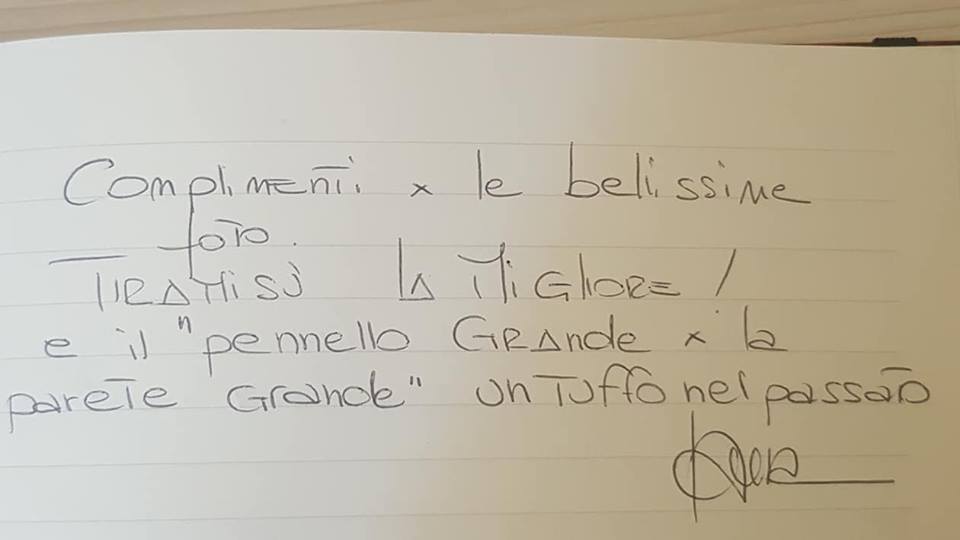 Complimenti x le belissime
foto.
TIRAMISÙ la Migliore!
e il "pennello GRANDE x la
parete Grande" un Tuffo nel passato